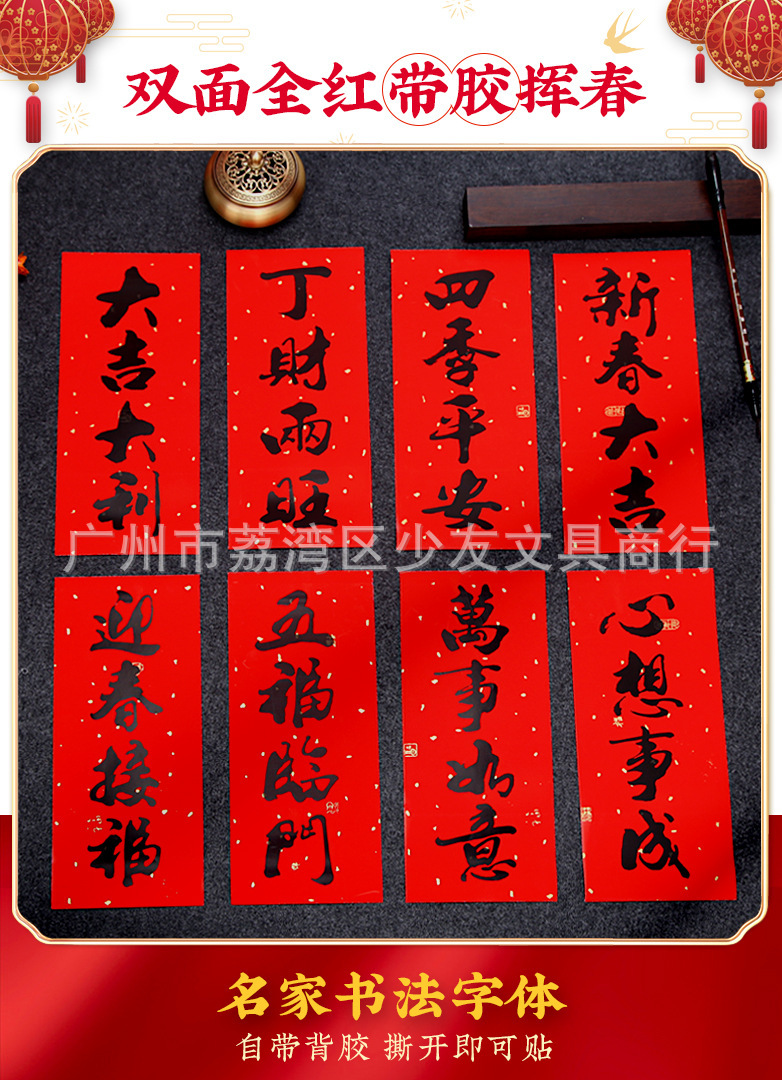 双面全红带胶挥春
大吉大利
丁財兩旺
四季平安
新春大吉
广州市荔湾区少友文具商行
迎春接福
五福臨門
萬事如意
心想事成
名家书法字体
自带背胶 撕开即可贴